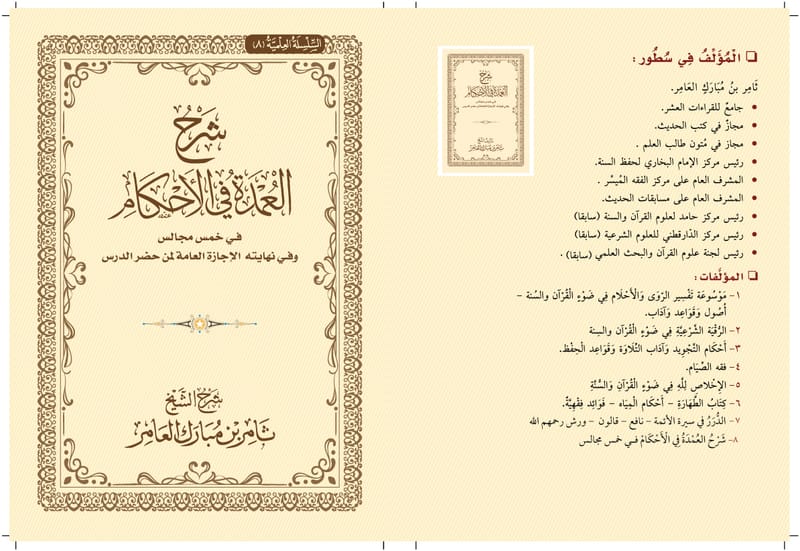 ❑ الْمُؤَلِّفُ فِي سُطُور :
ثَامِر بنُ مُبَارَكِ العَامِر.
• جامعٌ للقراءات العشر.
• مجازٌ في كتب الحديث.
• مجاز في مُتون طالب العلم .
• رئيس مركز الإمام البخاري لحفظ السنة.
• المشرف العام على مركز الفقه المُيسّر .
• المشرف العام على مسابقات الحديث.
• رئيس مركز حامد لعلوم القرآن والسنة (سابقا)
• رئيس مركز الدّارقطني للعلوم الشرعية (سابقا)
• رئيس لجنة علوم القرآن والبحث العلمي (سابقا) .
❑ المؤلَّفات :
١- مَوْسُوعَة تَفْسِير الرّوَى وَالْأَحْلَام فِي ضَوْءِ الْقُرْآن والسُنة -
أُصُول وَقَوَاعِد وَآدَاب.
٢- الرُّقْيَة الشَّرْعِيَّة فِي ضَوْءِ الْقُرْآن والسنة
٣- أَحْكَام التَّجْوِيد وَآدَاب التِّلَاوَة وَقَوَاعِد الْحِفْظ.
٤- فقه الصِّيَام.
٥- الْإِخْلَاص لِلَّهِ فِي ضَوْءِ الْقُرْآنِ وَالسُّنَّةِ
٦- كِتَابُ الطَّهَارَةِ - أَحْكَام الْمِيَاه - فَوَائِد فِقْهِيَّة.
٧- الدُّرَرُ في سيرة الأئمة - نافع - قالون - ورش رحمهم الله
٨- شَرْحُ العُمْدَةُ فِي الْأَحْكَامُ فـي خمس مجالس
شرح
العمدة في الأحكام
شرح الشيخ
ثامر بن مبارك العامر
السِّلْسِلَةُ العِلمِيَّةُ (٨)
شَرْحُ
العُمْدَةُ فِي الأَحْكَامِ
فـي خمس مجالس
وفـي نهايته الإجازة العامة لمن حضر الدرس
شَرْحُ الشَّيْخِ
ثَامِر بْن مُبَارَك العَامِر